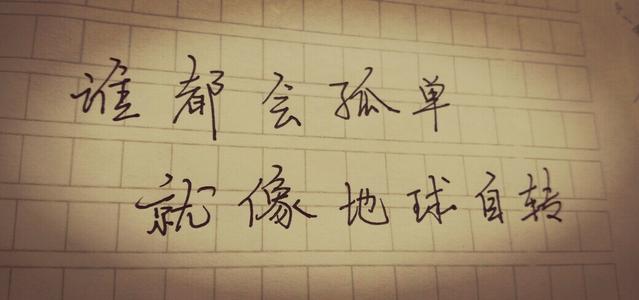 谁都会孤单
就像地球自转